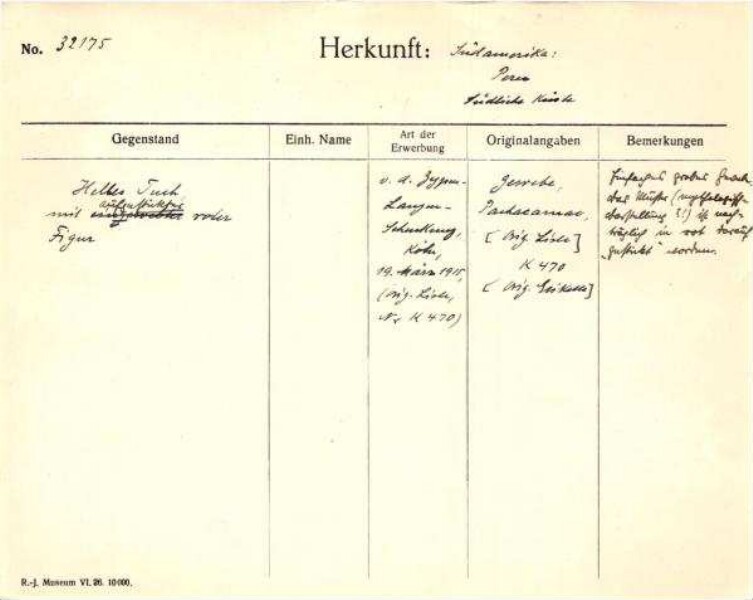 No. 32175
Herkunft: Südamerika:
Peru
Südliche Küste
Gegenstand
Einh. Name
Art der
Erwerbung
Originalangaben
Bemerkungen
Helles Tuch
aufgestickter
mit eingewebter roter
Figur
v. d. Zypen-
Langen-
Schenkung,
Köln,
19. März 1915,
(Orig.-Liste,
Nr K 470)
Gewebe,
Pachacamac,
[Orig. Liste]
K 470
[Orig. Etikette]
Einfaches grobes
das Muster
darstellung ?!) ist nach-
träglich in rot darauf
„gestickt" worden.
R.-J. Museum VI. 26. 10000.